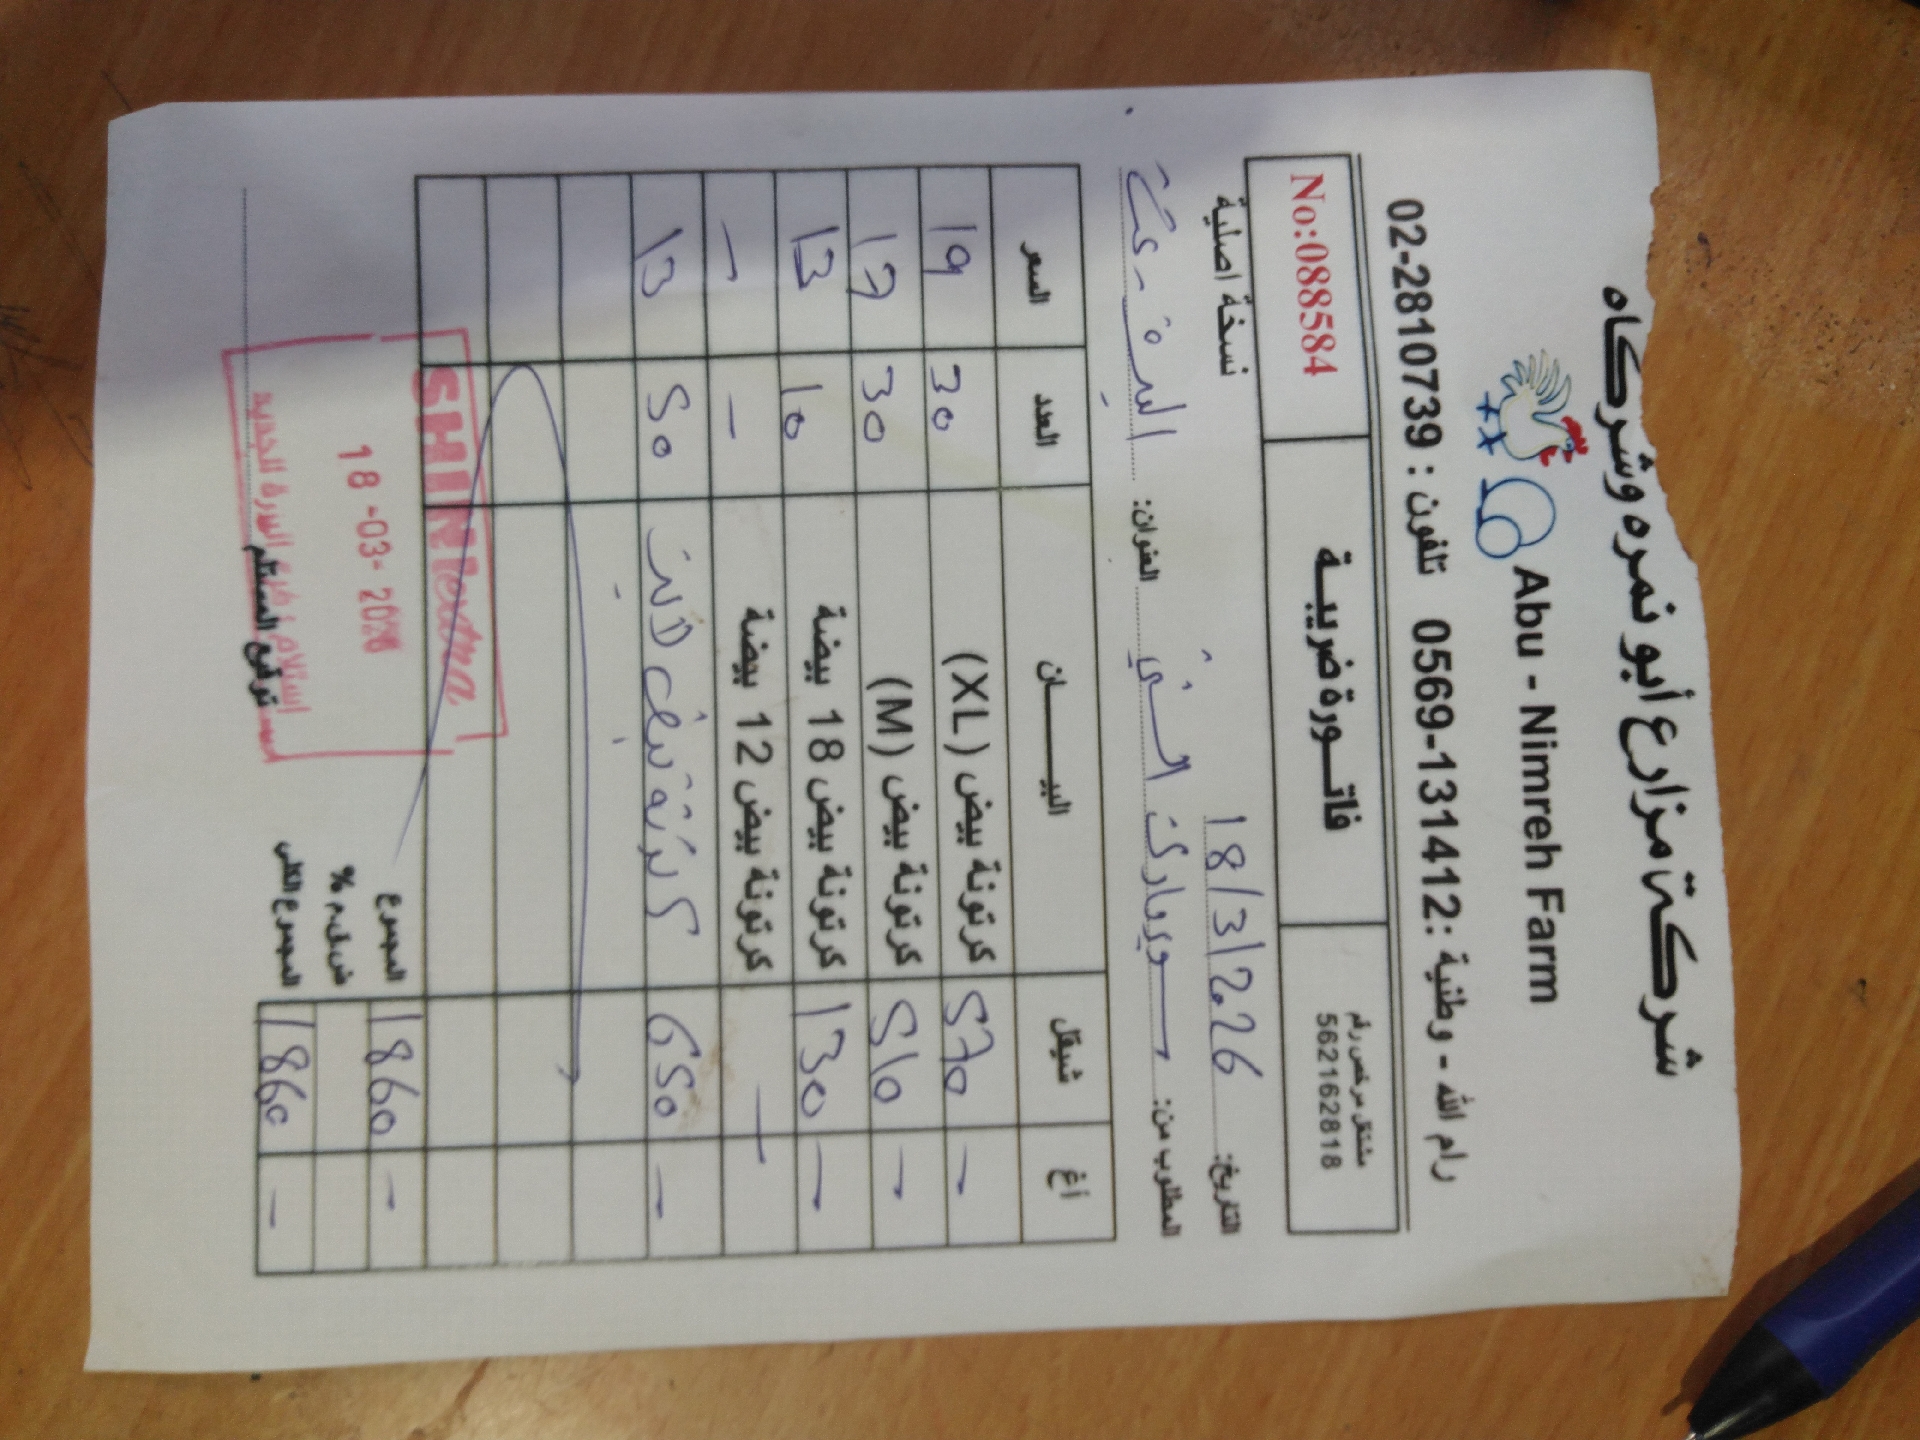 شركة مزارع أبو نمره وشركاه
Abu - Nimreh Farm
رام الله - وطنية: 0569-131412 تلفون: 02-2810739
مشتغل مرخص رقم 562162818
فاتورة ضريبية
No:088584
التاريخ: 18/3/2026
نسخة اصلية
المطلوب من: العنوان: البيرة
شيقل أغ البيـــان العدد السعر
570 - كرتونة بيض (XL) 30 19
510 - كرتونة بيض (M) 30 17
130 - كرتونة بيض 18 بيضة 10 13
- كرتونة بيض 12 بيضة - -
650 - 50 13
المجموع 1860 -
ض.ق.م %
المجموع الكلي 1860 -
توقيع المستلم
SHINI extra
18-03-2026